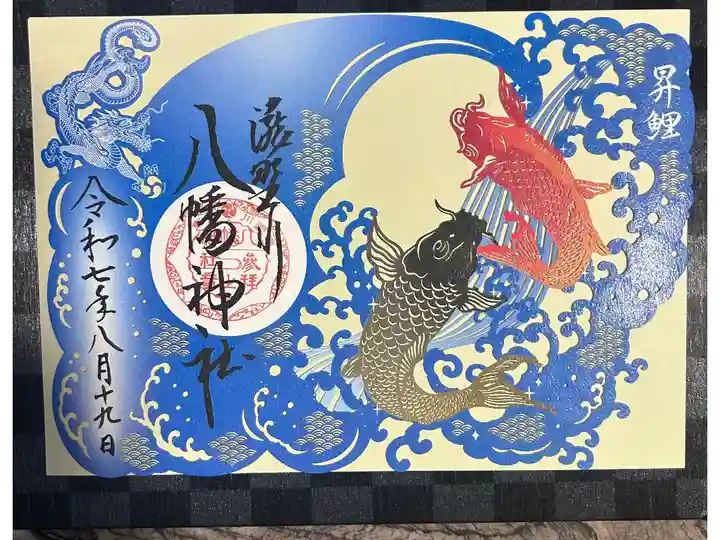 昇鯉
滝野川
八幡神社
令和七年八月十九日